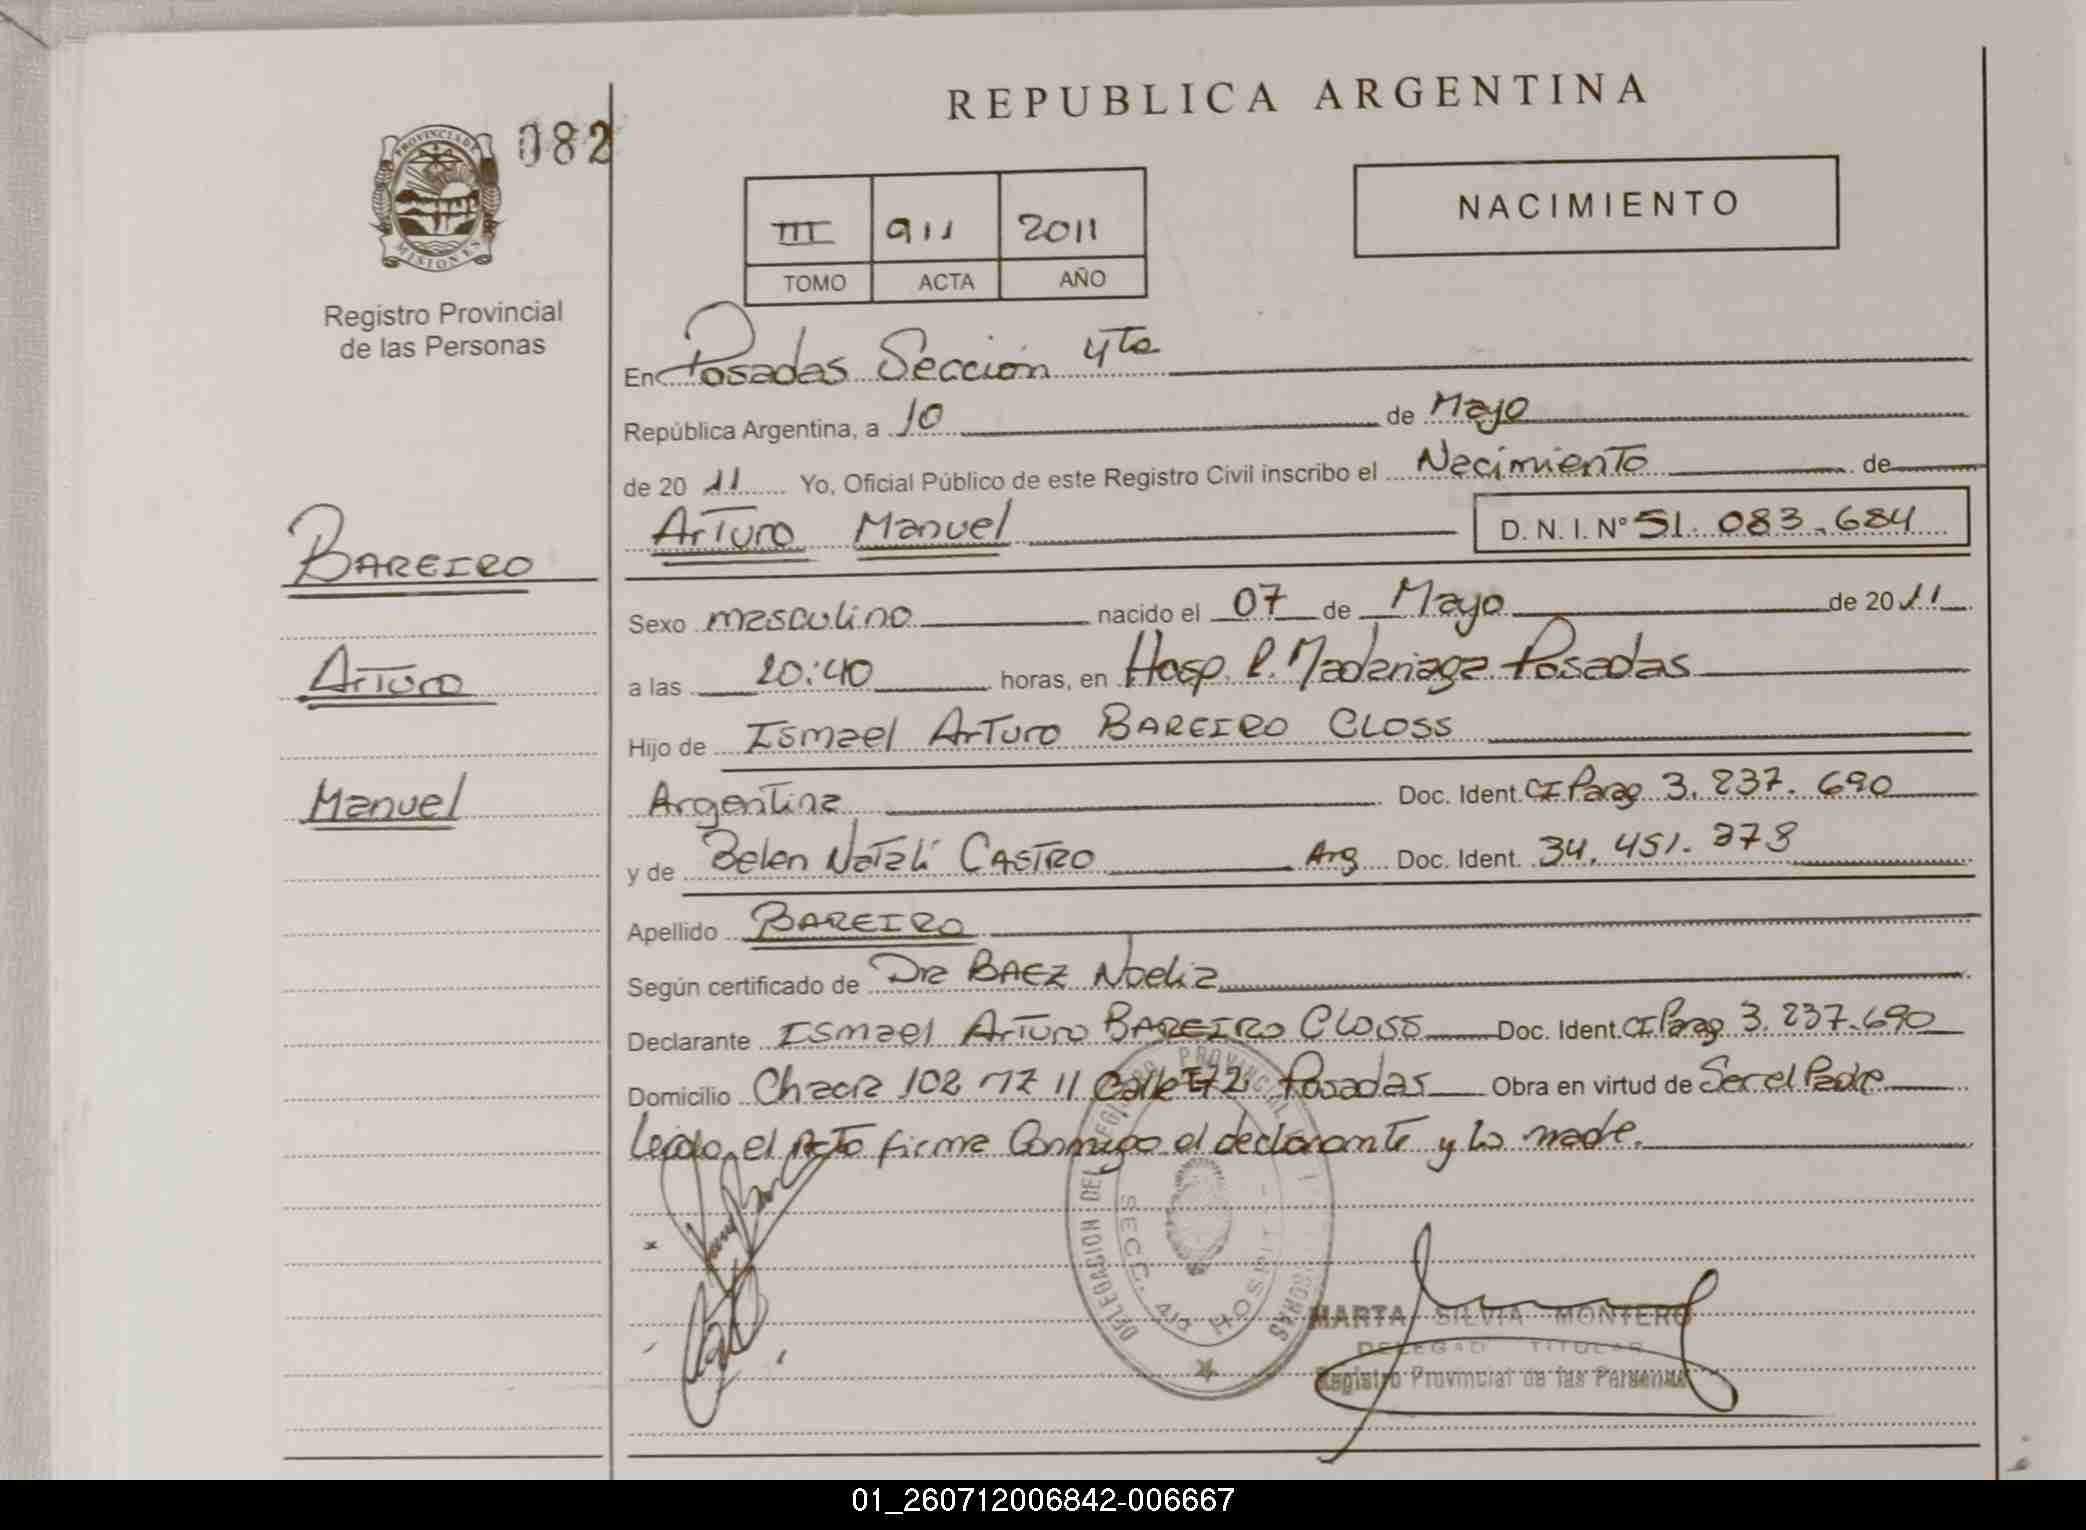 REPUBLICA ARGENTINA
082
PROVINCIA DE
MISIONES
Registro Provincial
de las Personas
III 911 2011
TOMO ACTA AÑO
NACIMIENTO
En Posadas Sección 4ta
República Argentina, a 10 de Mayo
de 20 11 Yo, Oficial Público de este Registro Civil inscribo el Nacimiento de
Arturo Manuel D. N. I. Nº 51.083.684
BAREIRO
Arturo
Manuel
Sexo masculino nacido el 07 de Mayo de 20 11
a las 20:40 horas, en Hosp. R. Madariaga Posadas
Hijo de Ismael Arturo BAREIRO CLOSS
Argentina Doc. Ident. CI Parag 3.237.690
y de Belen Natalí CASTRO Arg Doc. Ident. 34.451.378
Apellido BAREIRO
Según certificado de Dra BAEZ Noelia
Declarante Ismael Arturo BAREIRO CLOSS Doc. Ident. CI Parag 3.237.690
Domicilio Chacra 102 MZ 11 Calle 172 Posadas Obra en virtud de Ser el Padre
Leido el Acto firma Conmigo el declarante y la madre.
DELEGACION DEL REGISTRO PROVINCIAL PERSONAS
SECC. 4ta HOSPIT
MARTA SILVIA MONTERO
DELEGADO TITULAR
Registro Provincial de las Personas
01_260712006842-006667